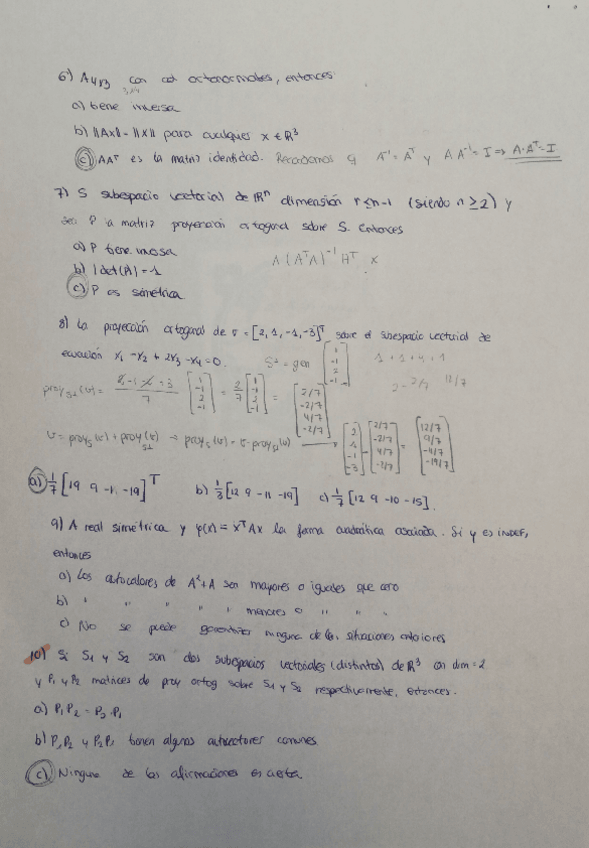 6) A4x3 con col ortonormales, entonces
3x4
a) tiene inversa
b) ||Ax|| = ||x|| para cualquier x ∈ R³
c) AAᵀ es la matriz identidad. Recordamos q A⁻¹ = Aᵀ y A A⁻¹ = I ⇒ A·Aᵀ = I
7) S subespacio vectorial de Rⁿ dimensión r ≤ n-1 (siendo n ≥ 2) y
sea P la matriz proyección ortogonal sobre S. Entonces
a) P tiene inversa
A(AᵀA)⁻¹Aᵀ x
b) |det(A)| = 1
c) P es simétrica
8) La proyección ortogonal de v = [2, 1, -1, -3]ᵀ sobre el subespacio vectorial de
ecuación x1 - x2 + 2x3 - x4 = 0. S⊥ = gen [1 -1 2 -1] 1 + 1 + 4 + 1
2 - 2/7 12/7
proy S⊥(v) = 2 - 1 - 2 + 3 / 7 [1 -1 2 -1] = 2/7 [1 -1 2 -1] = [2/7 -2/7 4/7 -2/7]
v = proy S(v) + proy S⊥(v) → proy S(v) = v - proy S⊥(v) → [2 1 -1 -3] - [2/7 -2/7 4/7 -2/7] = [12/7 9/7 -11/7 -19/7]
a) 1/7 [19 9 -11 -19]ᵀ b) 1/3 [12 9 -11 -19] c) 1/7 [12 9 -10 -15].
9) A real simétrica y φ(x) = xᵀAx la forma cuadrática asociada. Si φ es INDEF,
entonces
a) Los autovalores de A²+A son mayores o iguales que cero
b) " " " " " menores o " " "
c) No se puede garantizar ninguna de las situaciones anteriores
10) Si S1 y S2 son dos subespacios vectoriales (distintos) de R³ con dim = 2
y P1 y P2 matrices de proy ortog sobre S1 y S2 respectivamente, entonces.
a) P1P2 = P2P1
b) P1P2 y P2P1 tienen algunos autovectores comunes
c) Ninguna de las afirmaciones es cierta.